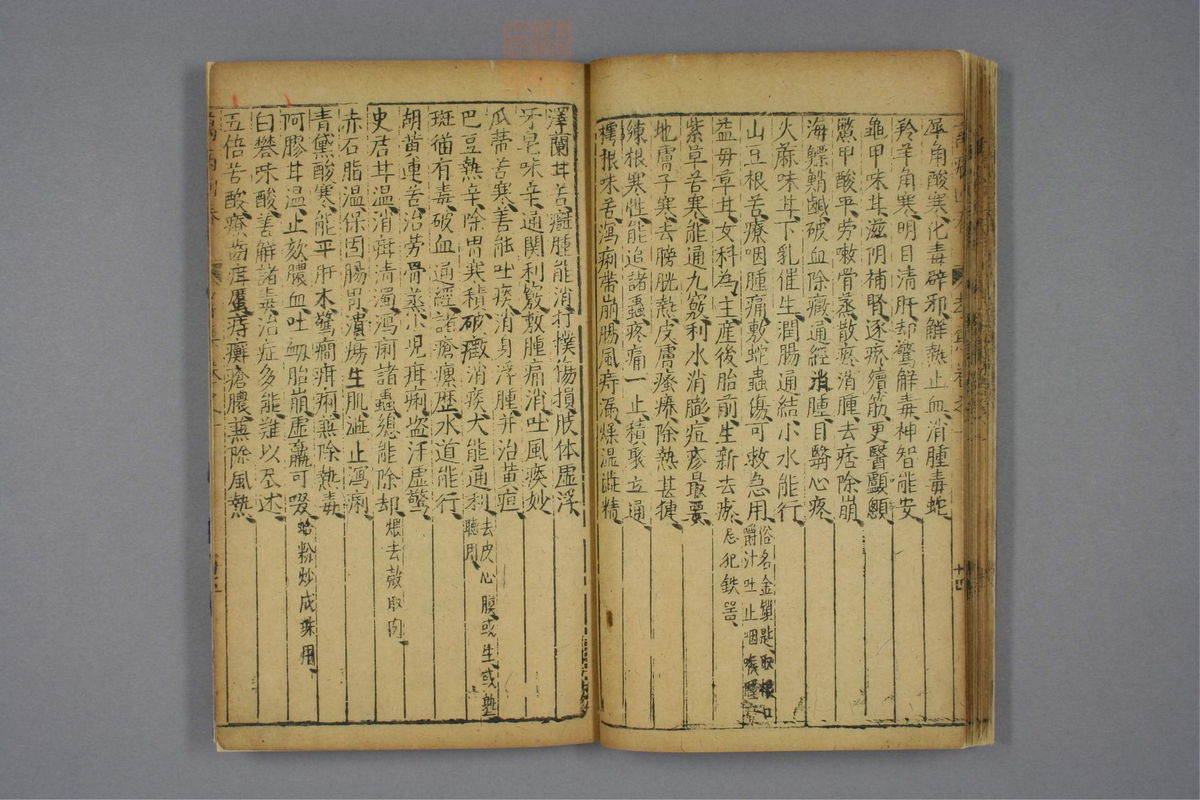 犀角酸寒化毒辟邪解熱止血消腫毒蛇
羚羊角寒明目清肝却驚解毒神智能安
龜甲味甘滋阴補腎逐瘀續筋更醫顱顖
鱉甲酸平劳嗽骨蒸散瘀消腫去痞除崩
海鰾鮹鹹破血除癥通經消腫目翳心疼
火蔴味甘下乳催生潤腸通結小水能行
山豆根苦療咽腫痛敷蛇蟲傷可救急用
俗名金鎖匙取根口
嚼汁吐止咽喉腫
益母草甘女科為主産後胎前生新去瘀
忌犯鉄器
紫草苦寒能通九竅利水消膨痘疹最要
地膚子寒去膀胱熱皮膚瘙療除熱甚捷
練根寒性能追諸蟲疼痛一止積聚立通
樗根味苦瀉痢帶崩腸風痔漏燥湿澁精
澤蘭甘苦癰腫能消打撲傷損肢体虛浮
牙皂味辛通関利竅敷腫痛消吐風痰妙
瓜蒂苦寒善能吐痰消身浮腫并治黄疸
巴豆熱辛除胃寒積破癥消痰大能通利
去皮心膜或生或熟
聽用
斑猫有毒破血通經諸瘡瘰歷水道能行
胡黄連苦治劳骨蒸小児疳痢盗汗虛驚
史君甘温消疳清濁瀉痢諸蟲總能除却
煨去殻取肉
赤石脂温保固腸胃潰瘍生肌澁止瀉痢
青黛酸寒能平肝木驚癇疳痢兼除熱毒
阿膠甘温止欬膿血吐衂胎崩虛羸可啜
蛤粉炒成珠用
白礬味酸善解諸毒治症多能難以尽述
五倍苦酸療齒疳䘌痔癬瘡膿兼除風熱